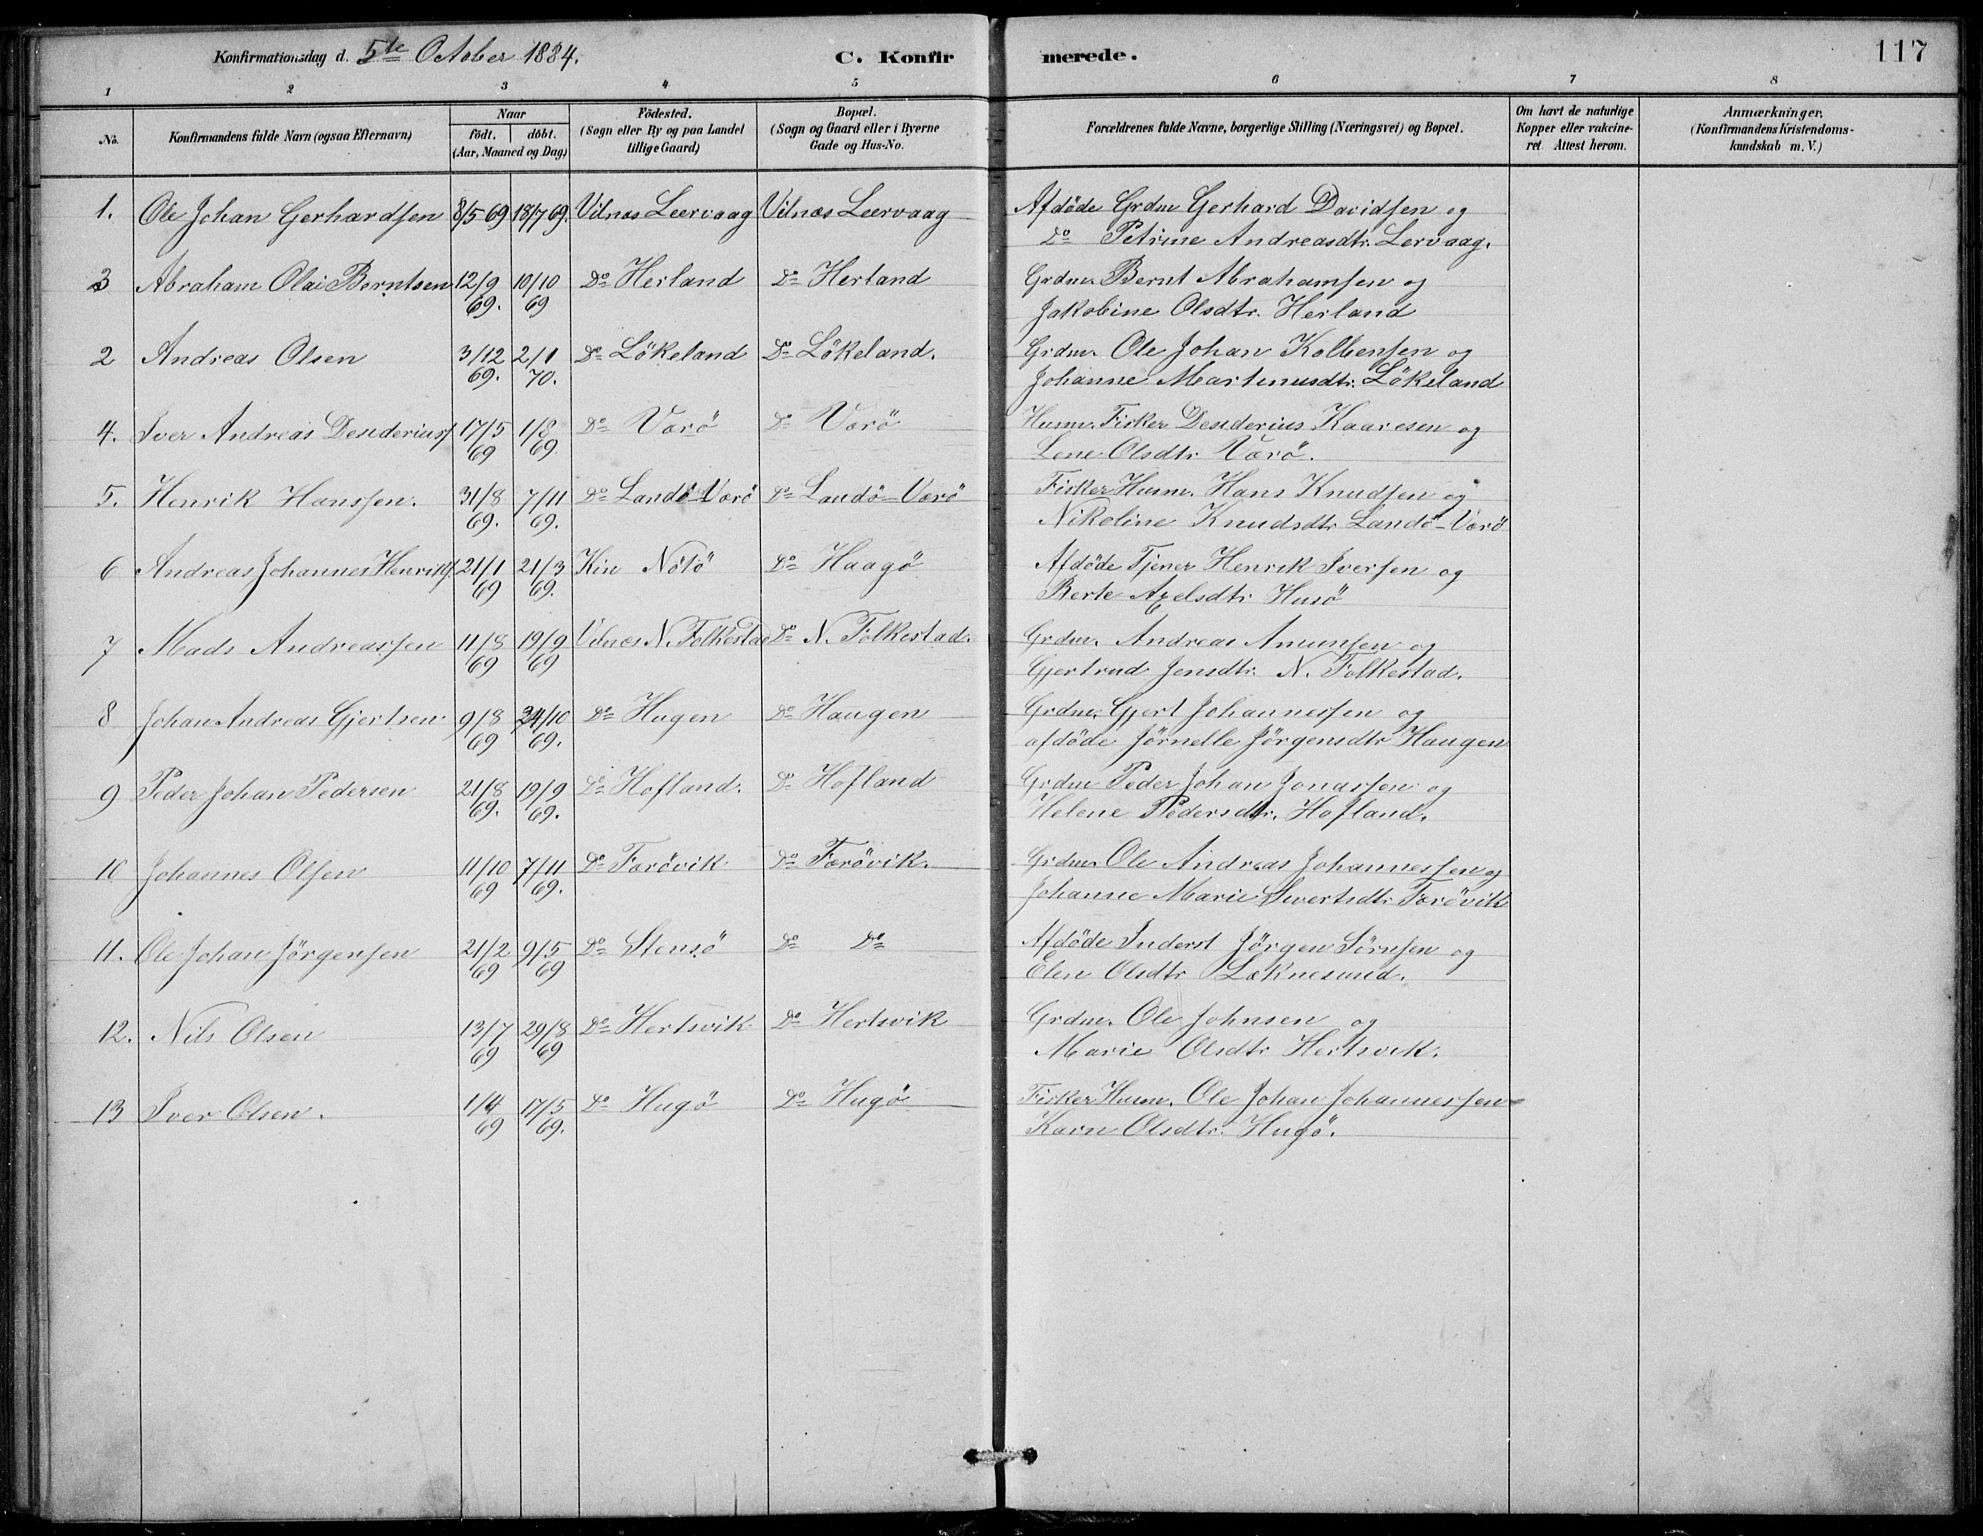 Konfirmationsdag d. 5te October 1884. C. Konfirmerede. 117
1 2 3 4 5 6 7 8
No. Konfirmandens fulde Navn (ogsaa Efternavn) Naar födt. döbt. (Aar, Maaned og Dag) Födested. (Sogn eller By og paa Landet tillige Gaard) Bopæl. (Sogn og Gaard eller i Byerne Gade og Hus-No. Forældrenes fulde Navne, borgerlige Stilling (Næringsvei) og Bopæl. Om havt de naturlige Kopper eller vakcineret Attest herom. Anmærkninger. (Konfirmandens Kristendomskundskab m. V.)
1. Ole Johan Gerhardsen 8/5 69 18/7 69. Vilnæs Leervaag Vilnæs Leervaag Afdöde Grdm Gerhard Davidsen og
Do Petrine Andreasdtr. Lervaag.
3 Abraham Olai Berntsen 12/9 69. 10/10 69 Do Herland Do Herland Grdm. Bernt Abrahamsen og
Jakobine Olsdtr. Herland
2 Andreas Olsen 3/12 69. 2/1 70. Do Lökeland Do Lökeland. Grdm. Ole Johan Kolbensen og
Johanne Martinusdtr. Lökeland
4. Iver Andreas Desideriuss 17/5 69 1/8 69. Do Værö Do Værö Husm. Fisker Desiderius Kaaresen og
Lene Olsdtr Værö.
5. Henrik Hanssen. 31/8 69. 7/11 69. Do Landö-Værö Do Landö-Værö Fisker Husm. Hans Knudsen og
Nikoline Knudsdtr Landö-Værö
6 Andreas Johannes Henriks. 21/1 69 21/3 69. Kin Nötö Do Haagö Afdöde Tjener Henrik Iversen og
Berte Axelsdtr Husö
7 Mads Andreassen 11/8 69 19/9 69 Vilnæs N. Folkestad Do N. Folkestad. Grdm. Andreas Amunsen og
Gjertrud Jensdtr. N. Folkestad.
8 Johan Andreas Gjertsen 9/8 69 24/10 69. Do Hugen Do Haugen Grdm. Gjert Johannessen og
afdöde Jörnelle Jörgensdtr Haugen
9 Peder Johan Pedersen 21/8 69. 19/9 69. Do Hofland. Do Hofland Grdm Peder Johan Jonassen og
Helene Pedersdtr. Hofland.
10 Johannes Olsen 11/10 69 7/11 69. Do Færövik Do Færövik. Grdm. Ole Andreas Johannessen og
Johanne Marie Sivertsdtr Færövik
11. Ole Johan Jörgensen 21/2 69 9/5 69 Do Stensö Do Do Afdöde Inderst Jörgen Sörnsen og
Elen Olsdtr Læknesund.
12. Nils Olsen 13/7 69 29/8 69 Do Hertsvik Do Hertsvik Grdm. Ole Johnsen og
Marie Olsdtr Hertsvik.
13 Iver Olsen. 1/4 69 17/5 69. Do Hugö Do Hugö Fisker Husm. Ole Johan Johannessen
Karn Olsdtr. Hugö.